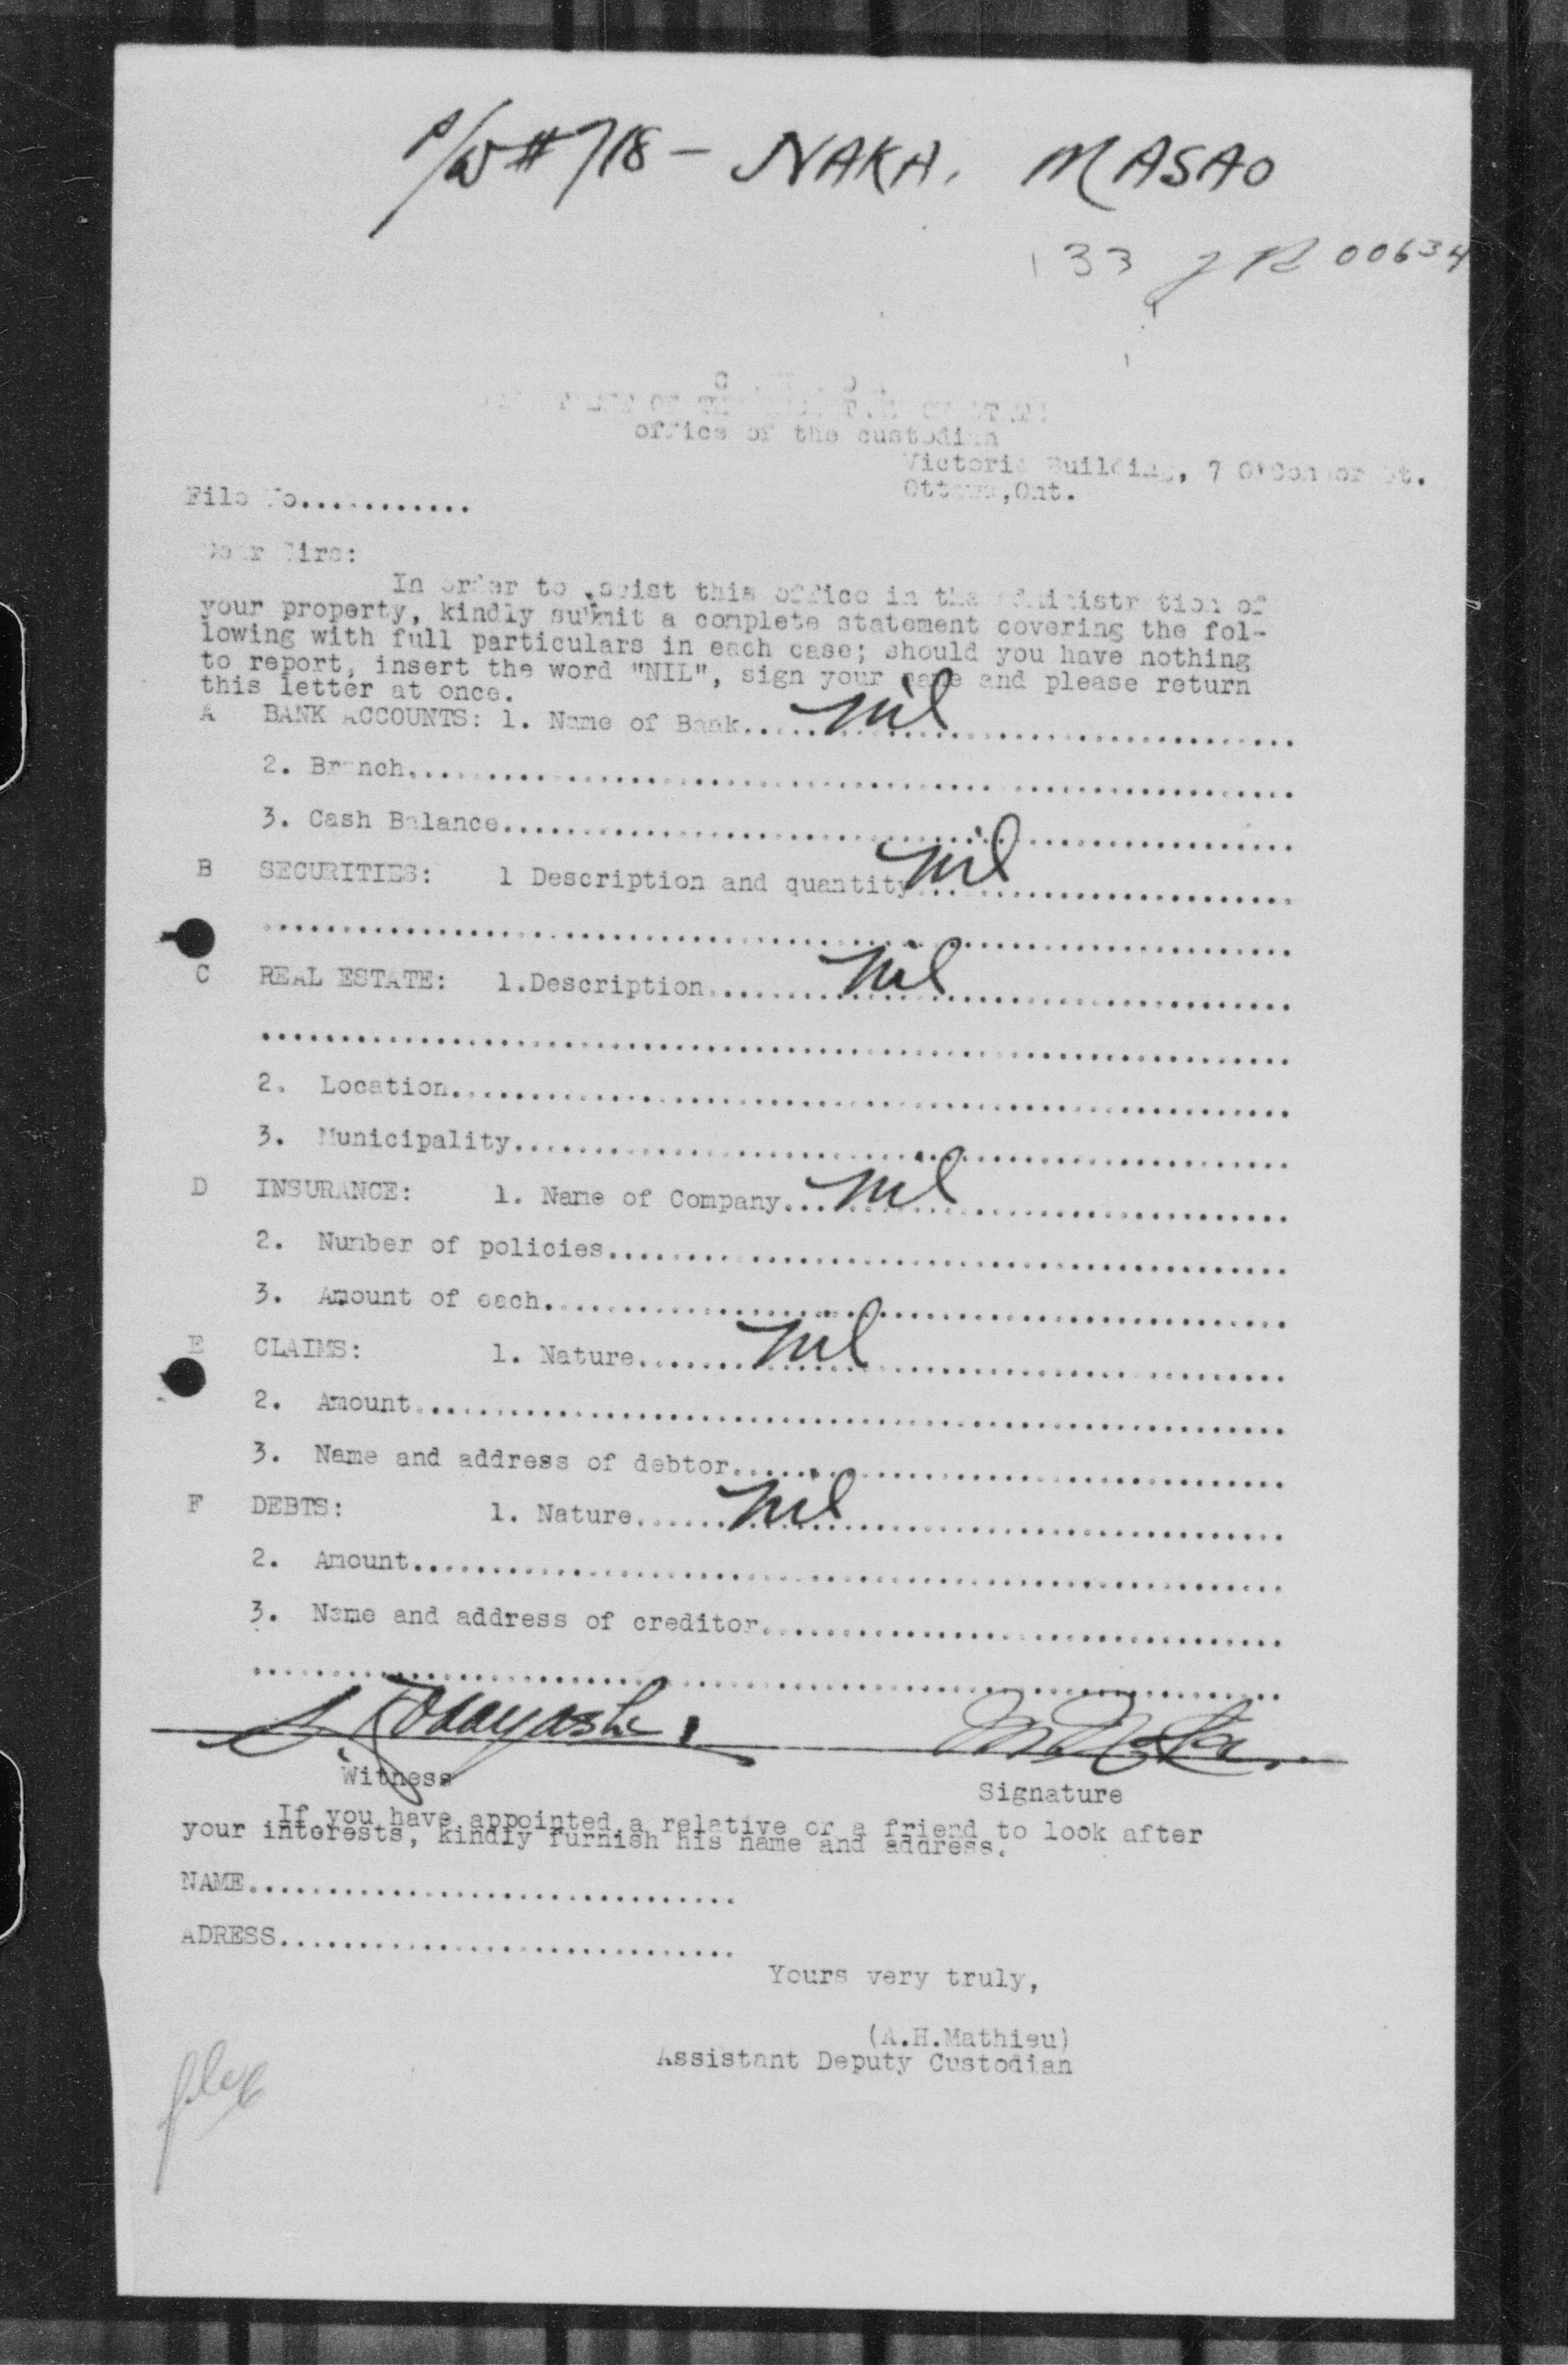 P/W # 718 - NAKA, MASAO
133 JR 00634
OF THE OF STATE
office of the custodian
Victoria Building, 7 O'Connor St.
File No............ Ottawa,Ont.
Dear Sirs:
In order to assist this office in the administration of
your property, kindly submit a complete statement covering the fol-
lowing with full particulars in each case; should you have nothing
to report, insert the word "NIL", sign your name and please return
this letter at once.
A BANK ACCOUNTS: 1. Name of Bank..... nil
2. Branch.....
3. Cash Balance.....
B SECURITIES: 1 Description and quantity nil
C REAL ESTATE: 1.Description..... nil
2. Location.....
3. Municipality.....
D INSURANCE: 1. Name of Company... nil
2. Number of policies.....
3. Amount of each.....
E CLAIMS: 1. Nature..... nil
2. Amount.....
3. Name and address of debtor.....
F DEBTS: 1. Nature..... nil
2. Amount.....
3. Name and address of creditor.....
Kobayashi M. Naka.
Witness Signature
If you have appointed a relative or a friend to look after
your interests, kindly furnish his name and address.
NAME.....
ADRESS.....
Yours very truly,
(A.H.Mathieu)
Assistant Deputy Custodian